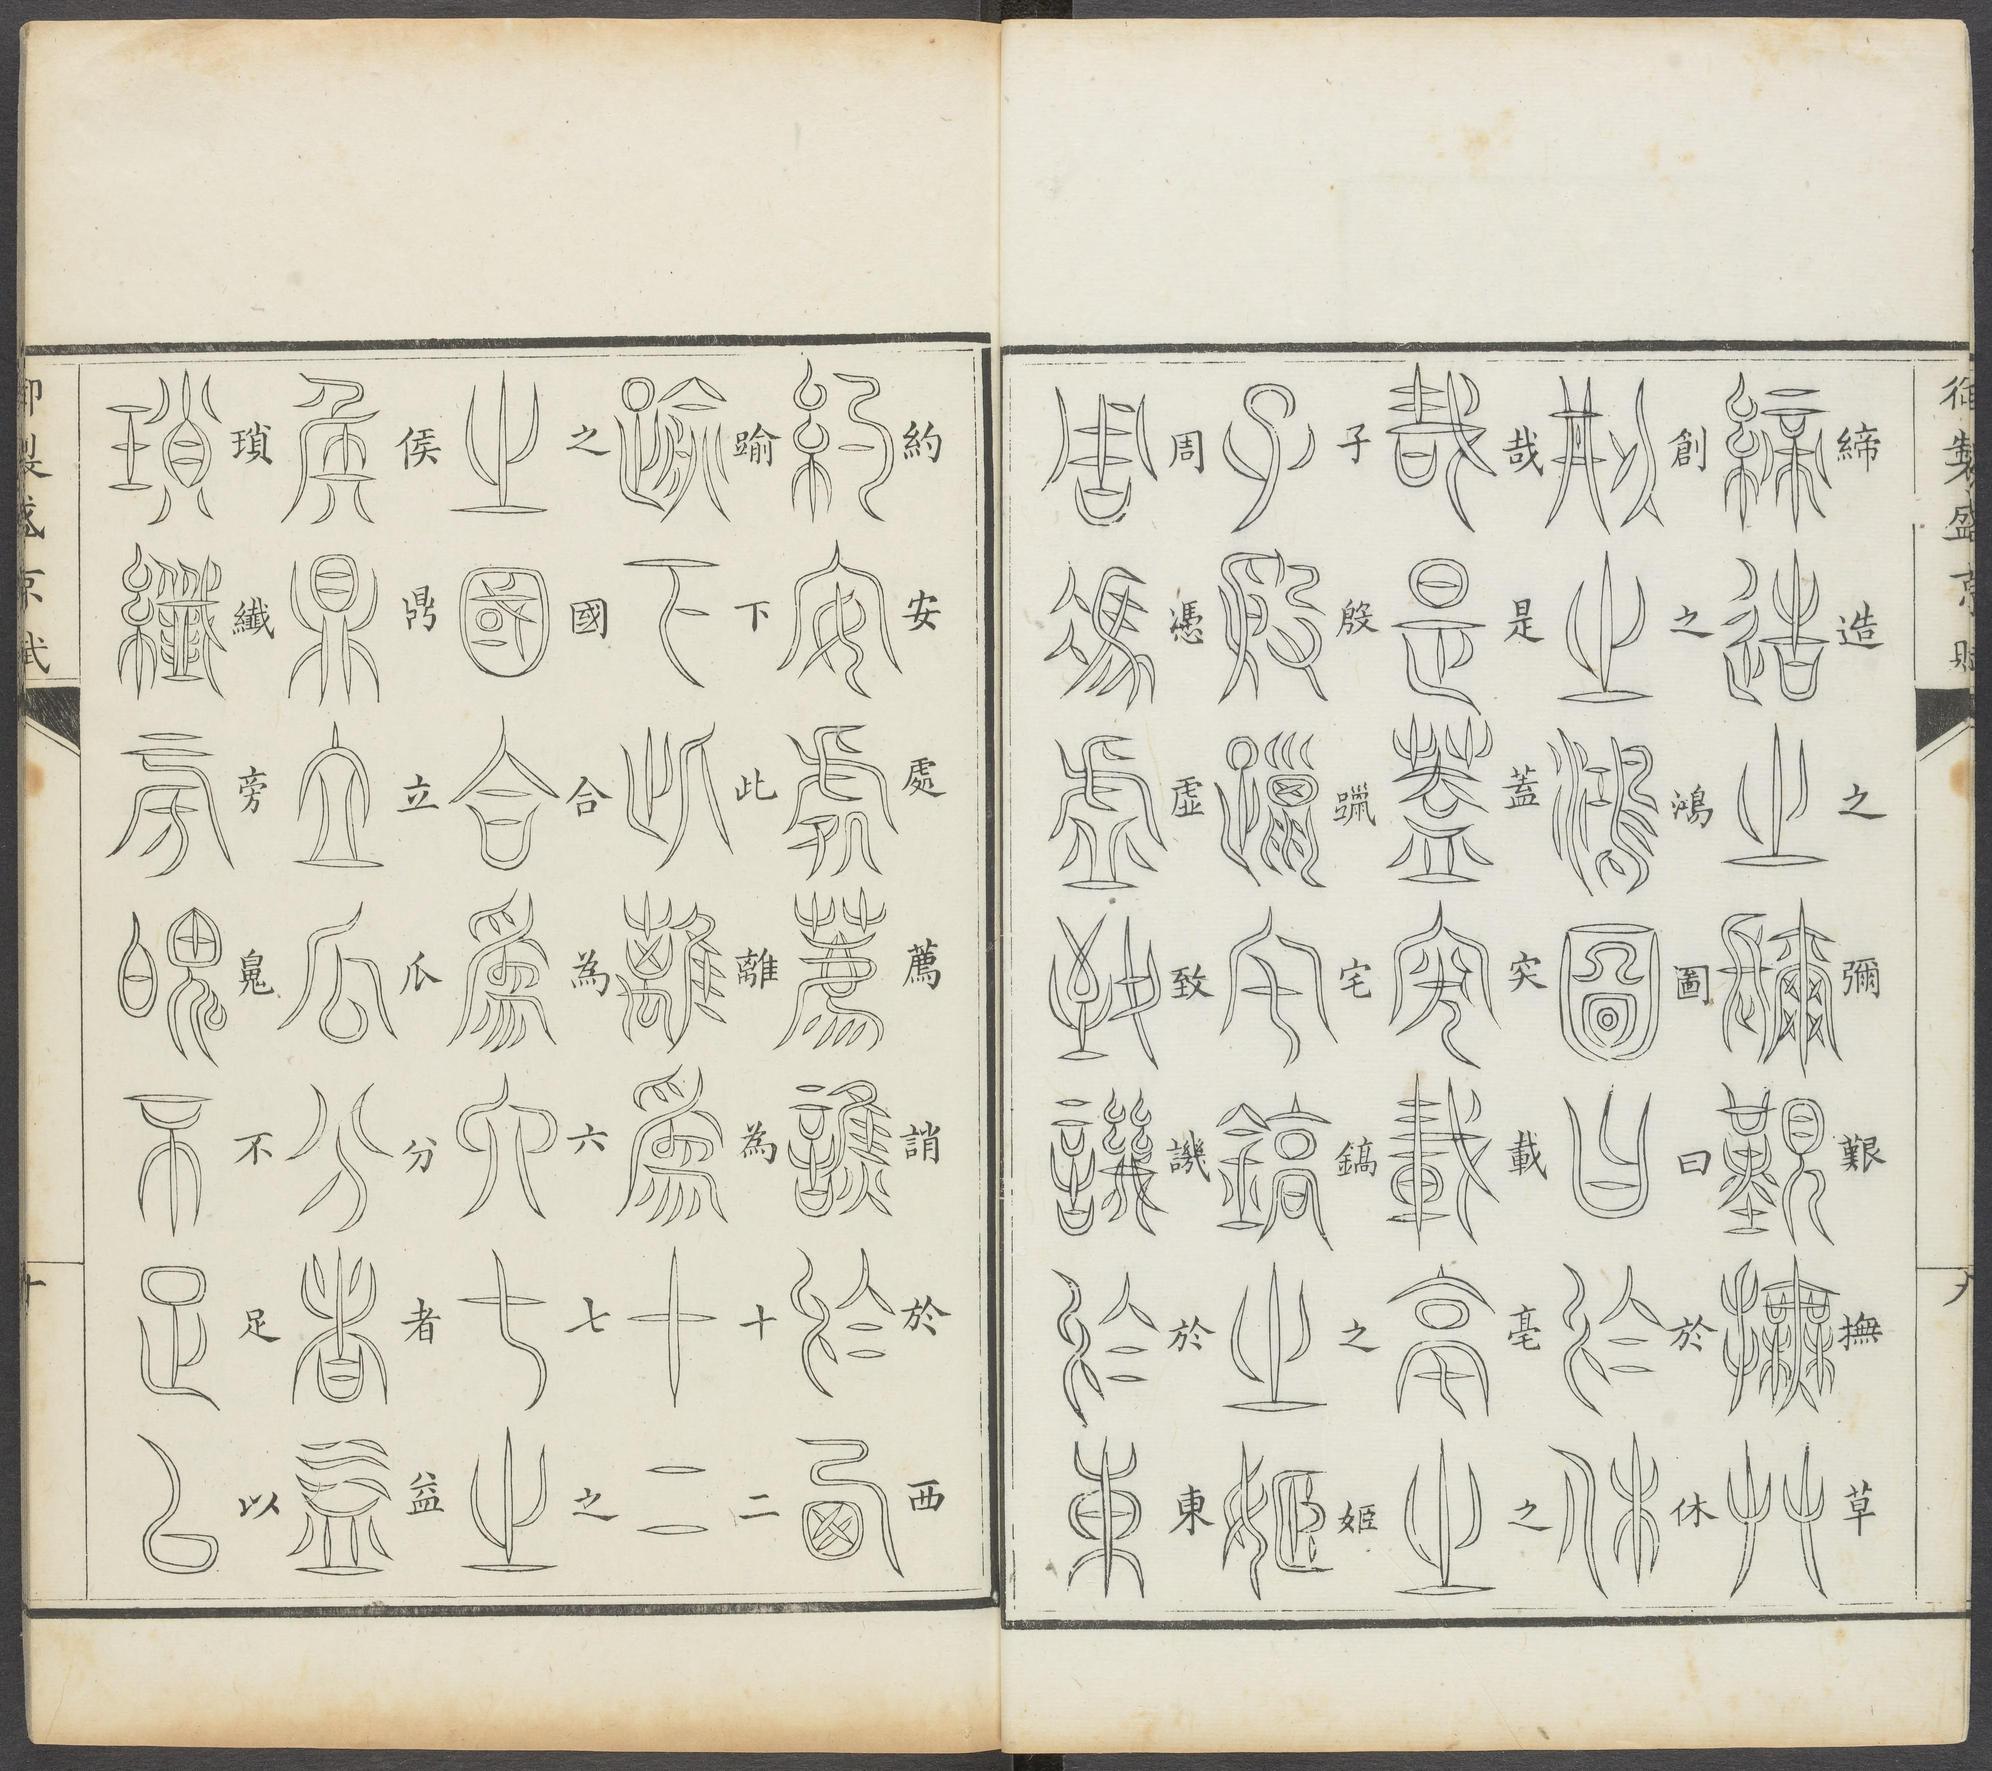 御製盛京賦
締造之彌艱撫草
創之鴻圖曰於休
哉是蓋突載亳之
子殷躐宅鎬之姬
周憑虛致譏於東
約安處薦誚於西
踰下此離為十二
之國合為六七之
侯鼎立瓜分者益
瑣纖旁魄不足以
御製盛京賦